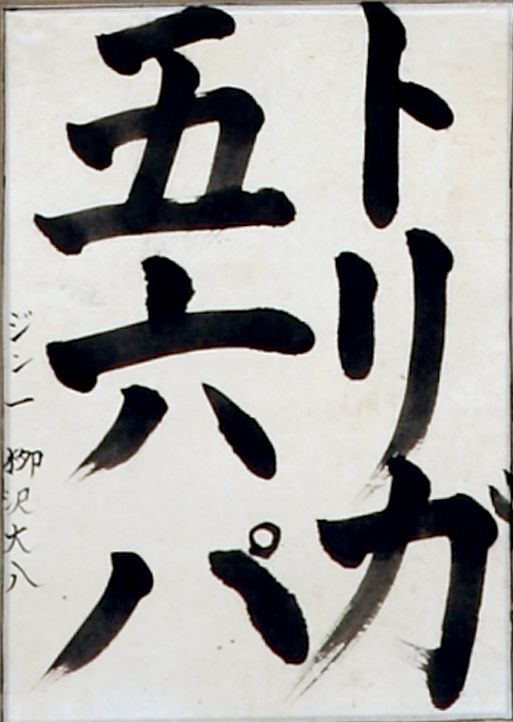 トリガ
五六パ
ジン一 柳沢大八